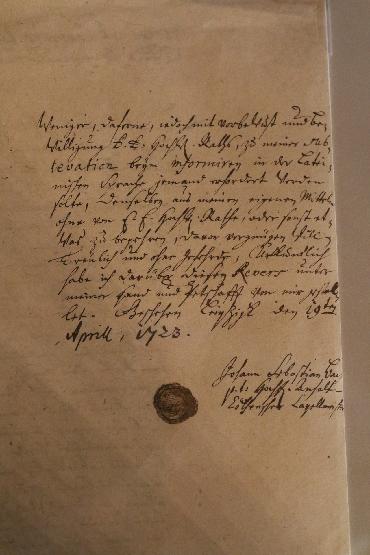 Weniger, daferne, iedoch mit Vorbewust und Be-
willigung E. E. Hochw. Raths, zu meiner Sub-
levation beym informiren in der Latei-
nischen Sprache jemand erfordert werden
solte, denselben aus meinen eigenen Mitteln
ohne von E. E. Hochw. Rathe, oder sonst et-
was zu begehren, davor vergnügen
Treulich und ohne Gefehrde, Uhrkundlich
habe ich darüber diesen Revers unter
meiner Hand und Petschafft von mir
let. Geschehen Leipzigk den 19ten
Aprill, 1723.
Johann Sebastian
p. t. Hochf. Anhalt-
Cöthenscher